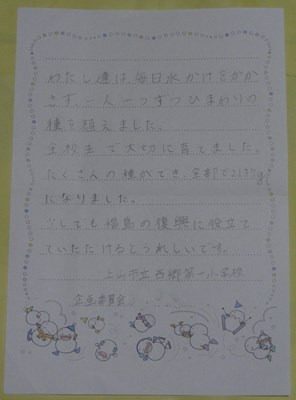 わたし達は毎日水かけをかか
さず、一人一つずつひまわりの
種を植えました。
全校生で大切に育てました。
たくさんの種ができ、全部で
になりました。
少しでも福島の復興に役立て
ていただけるとうれしいです。
上山市立西郷第一小学校
企画委員会